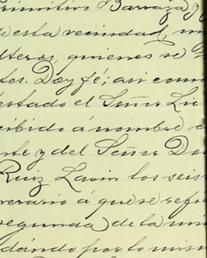 rimitivo Barraza y
esta vecindad, m
lteros, quienes se
tes. Doy fé; asi como
estado el Señor Lic
cibido á nombre d
nte y del Señor Do
Ruiz Lavin los seis
erario á que se refi
segunda de la mi
dándo por lo mism